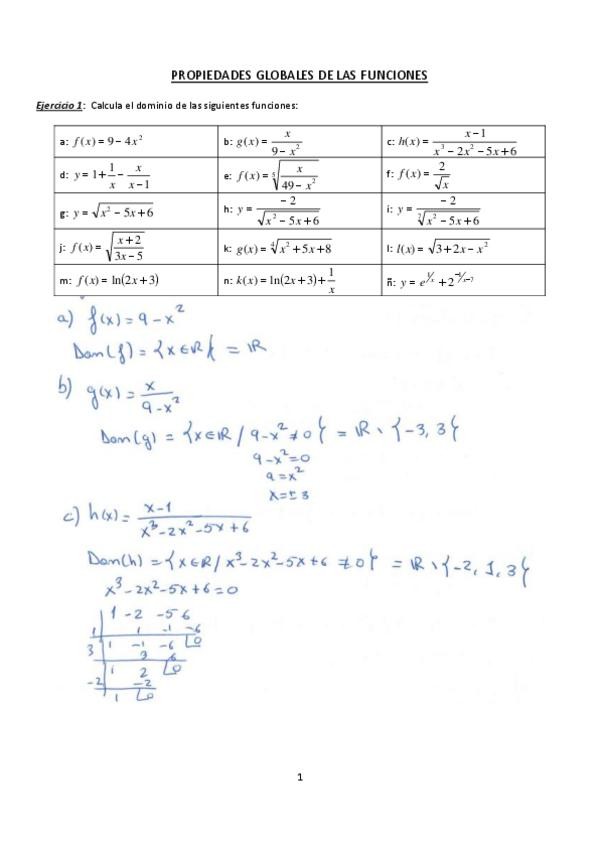 PROPIEDADES GLOBALES DE LAS FUNCIONES
Ejercicio 1: Calcula el dominio de las siguientes funciones:
a: f(x) = 9 − 4x² b: g(x) = x/(9 − x²) c: h(x) = (x − 1)/(x³ − 2x² − 5x + 6)
d: y = 1 + 1/x − x/(x − 1) e: f(x) = ⁵√(x/(49 − x²)) f: f(x) = 2/√x
g: y = √(x² − 5x + 6) h: y = −2/√(x² − 5x + 6) i: y = −2/∛(x² − 5x + 6)
j: f(x) = √((x + 2)/(3x − 5)) k: g(x) = ⁴√(x² + 5x + 8) l: l(x) = √(3 + 2x − x²)
m: f(x) = ln(2x + 3) n: k(x) = ln(2x + 3) + 1/x ñ: y = e^(1/x) + 2
a) f(x) = 9 − x²
Dom(f) = {x ∈ ℝ} = ℝ
b) g(x) = x/(9 − x²)
Dom(g) = {x ∈ ℝ / 9 − x² ≠ 0} = ℝ \ {−3, 3}
9 − x² = 0
9 = x²
x = ± 3
c) h(x) = (x − 1)/(x³ − 2x² − 5x + 6)
Dom(h) = {x ∈ ℝ / x³ − 2x² − 5x + 6 ≠ 0} = ℝ \ {−2, 1, 3}
x³ − 2x² − 5x + 6 = 0
1 −2 −5 6
1 1 −1 −6
1 −1 −6 0
3 3 6
1 2 0
−2 −2
1 0
1